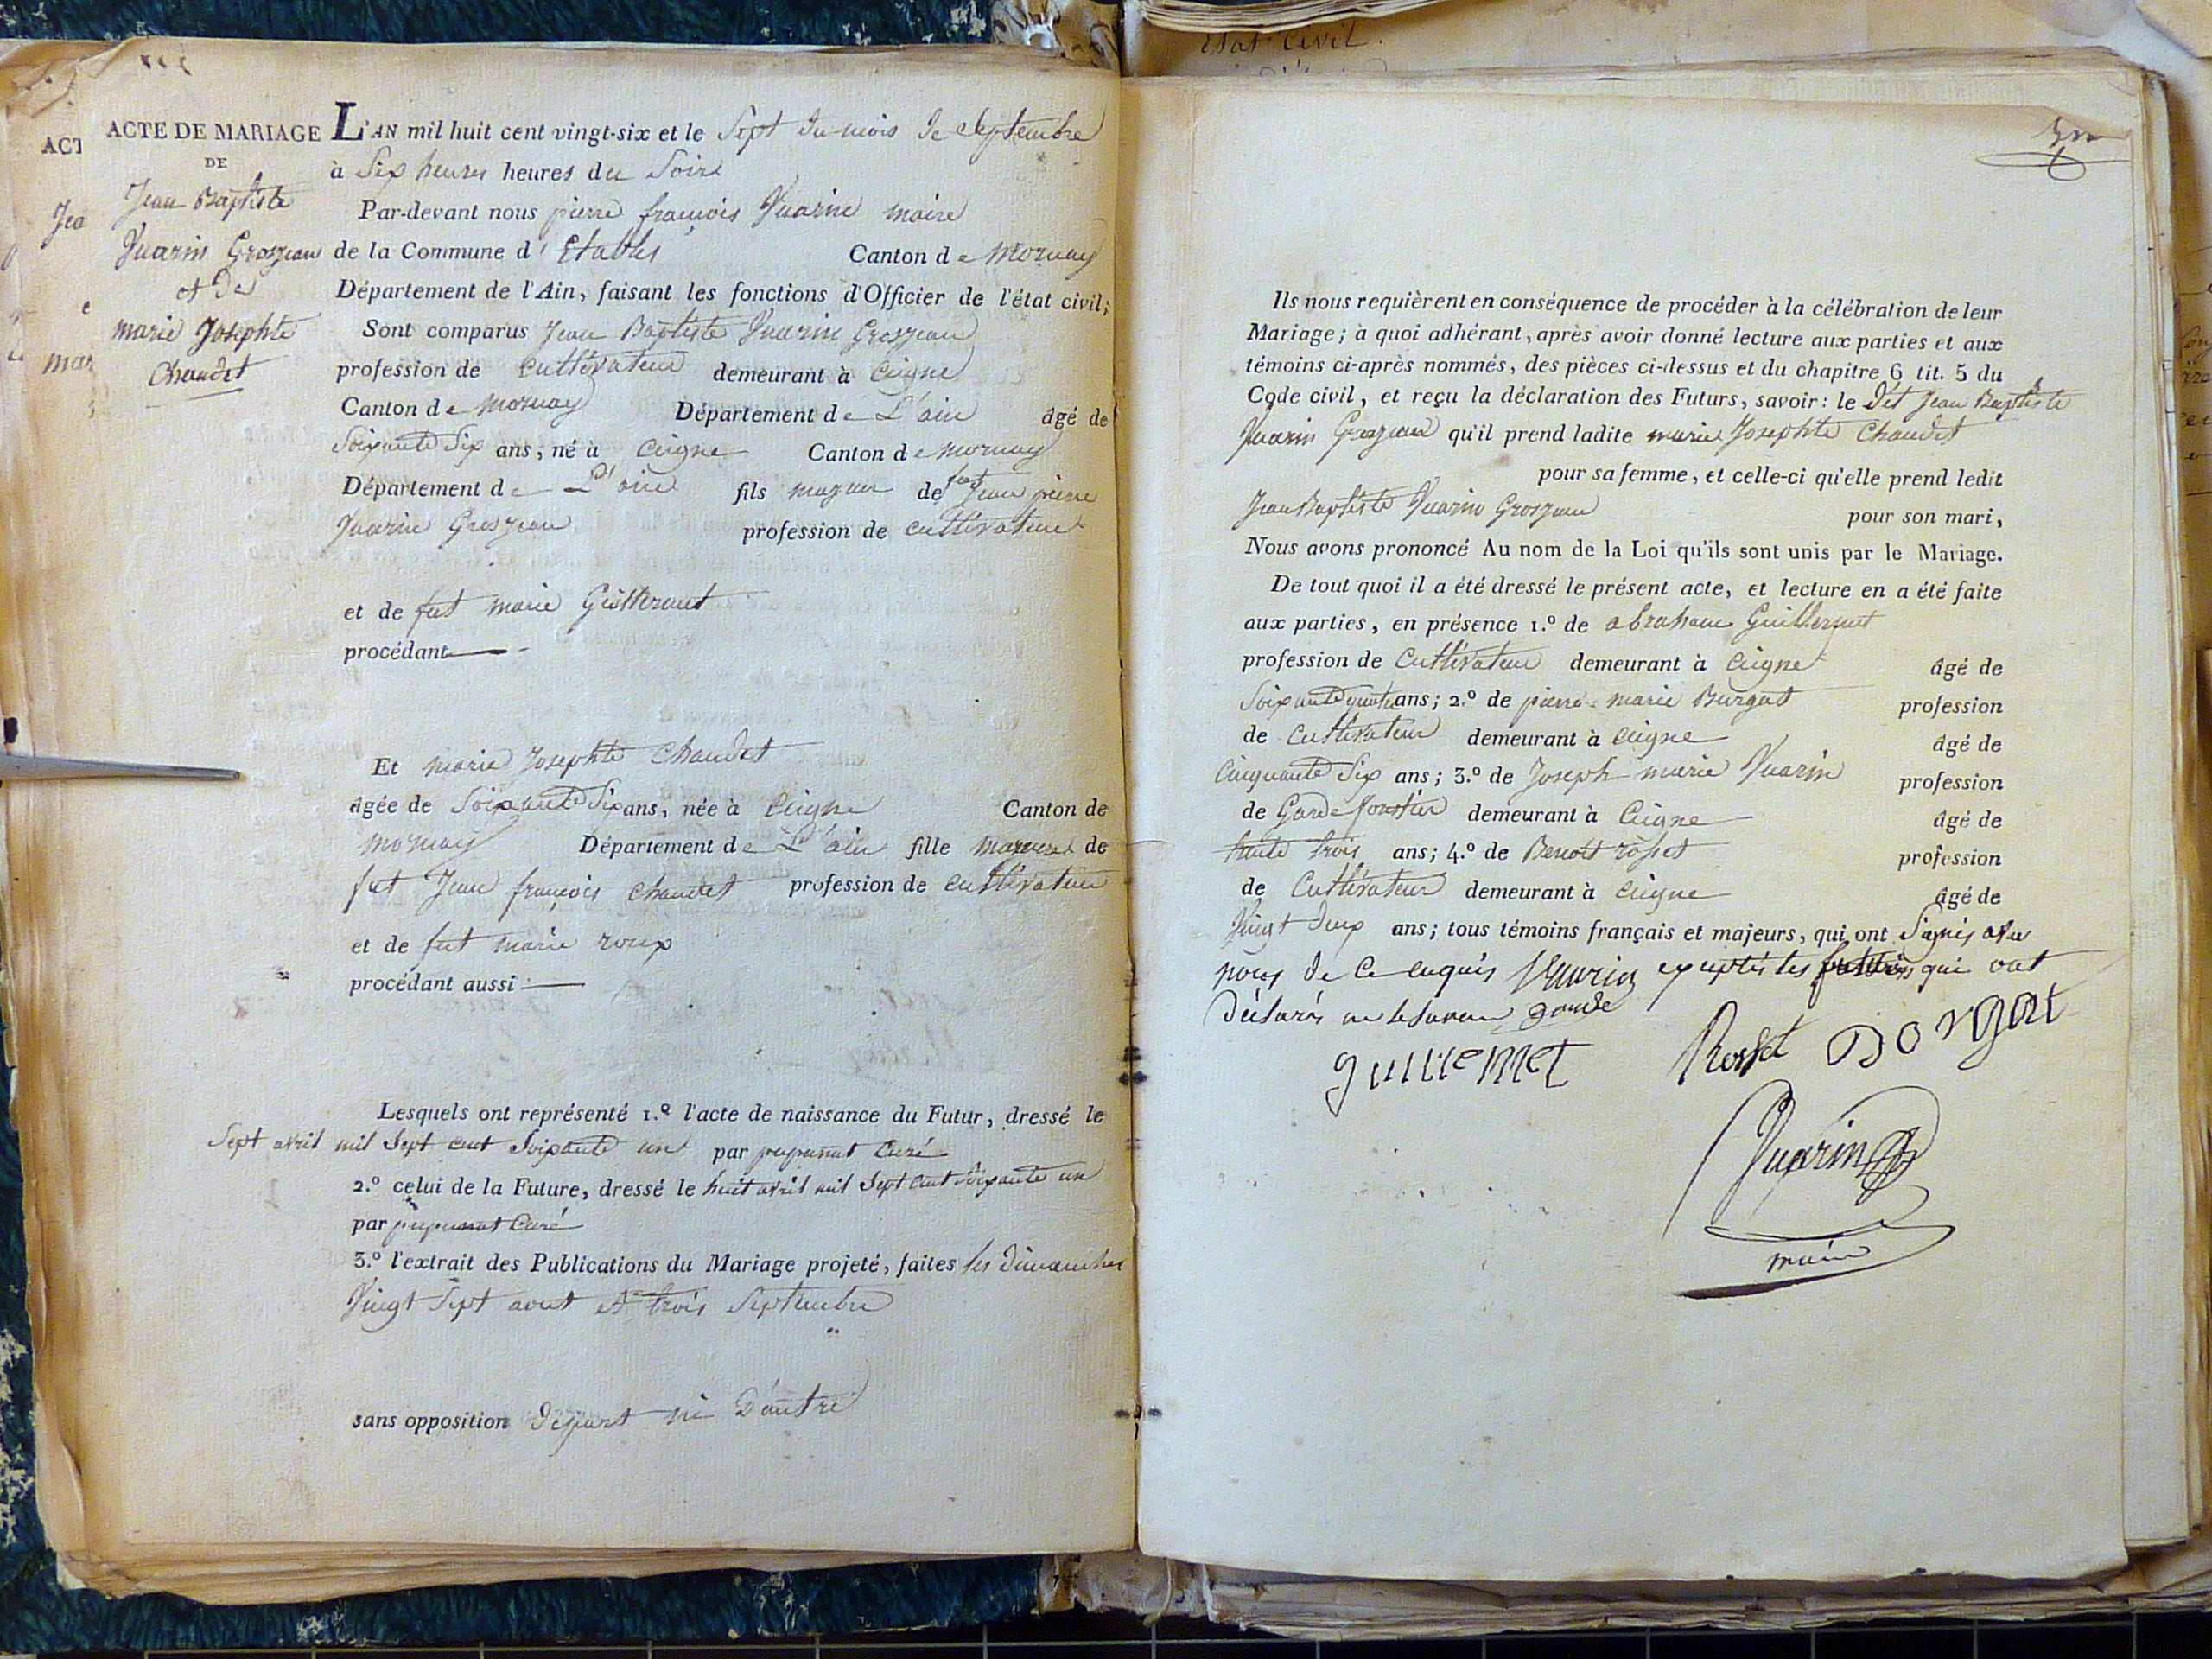 ACTE DE MARIAGE
DE
Jean Baptiste
Vuarin Grosjean
et de
marie Josephte
Chaudet
ACT
Jea
mar
L'AN mil huit cent vingt-six et le Sept du mois de Septembre
à Six heures heures du Soire
Par-devant nous pierre françois Vuarin maire
de la Commune d' Etables Canton de Mornay
Département de l'Ain, faisant les fonctions d'Officier de l'état civil;
Sont comparus Jean Baptiste Vuarin Grosjean
profession de Cultivateur demeurant à Ceigne
Canton de Mornay Département de L'ain âgé de
Soixante Six ans, né à Ceigne Canton de Mornay
Département de L'ain fils majeur de fut Jean pierre
Vuarin Grosjean profession de cultivateur
et de fut marie Guillermet
procédant
Et marie Josephte Chaudet
âgée de Soixante Six ans, née à Ceigne Canton de
Mornay Département de L'ain fille majeure de
fut Jean françois Chaudet profession de cultivateur
et de fut marie roux
procédant aussi
Lesquels ont représenté 1.º l'acte de naissance du Futur, dressé le
Sept avril mil Sept cent Soixante un par pupunat Curé
2.º celui de la Future, dressé le huit avril mil Sept cent Soixante un
par pupunat Curé
3.º l'extrait des Publications du Mariage projeté, faites les dimanches
Vingt Sept aout et trois Septembre
sans opposition depart ni D'autre
Etat Civil.
Ils nous requièrent en conséquence de procéder à la célébration de leur
Mariage; à quoi adhérant, après avoir donné lecture aux parties et aux
témoins ci-après nommés, des pièces ci-dessus et du chapitre 6 tit. 5 du
Code civil, et reçu la déclaration des Futurs, savoir: le dit Jean Baptiste
Vuarin Grosjean qu'il prend ladite marie Josephte Chaudet
pour sa femme, et celle-ci qu'elle prend ledit
Jean Baptiste Vuarin Grosjean pour son mari,
Nous avons prononcé Au nom de la Loi qu'ils sont unis par le Mariage.
De tout quoi il a été dressé le présent acte, et lecture en a été faite
aux parties, en présence 1.º de abraham Guillermet
profession de Cultivateur demeurant à Ceigne âgé de
Soixante quatre ans; 2.º de pierre-marie Burgat profession
de Cultivateur demeurant à Ceigne âgé de
Cinquante Six ans; 3.º de Joseph marie Vuarin profession
de Garde forestier demeurant à Ceigne âgé de
trente trois ans; 4.º de Benoit rosset profession
de Cultivateur demeurant à Ceigne âgé de
Vingt deux ans; tous témoins français et majeurs, qui ont Signés avec
nous de ce enquis Vuarin exceptés les qui ont
Déclarés ne le savoir garde
guillemet Rosset Borgat
Vuarin
maire